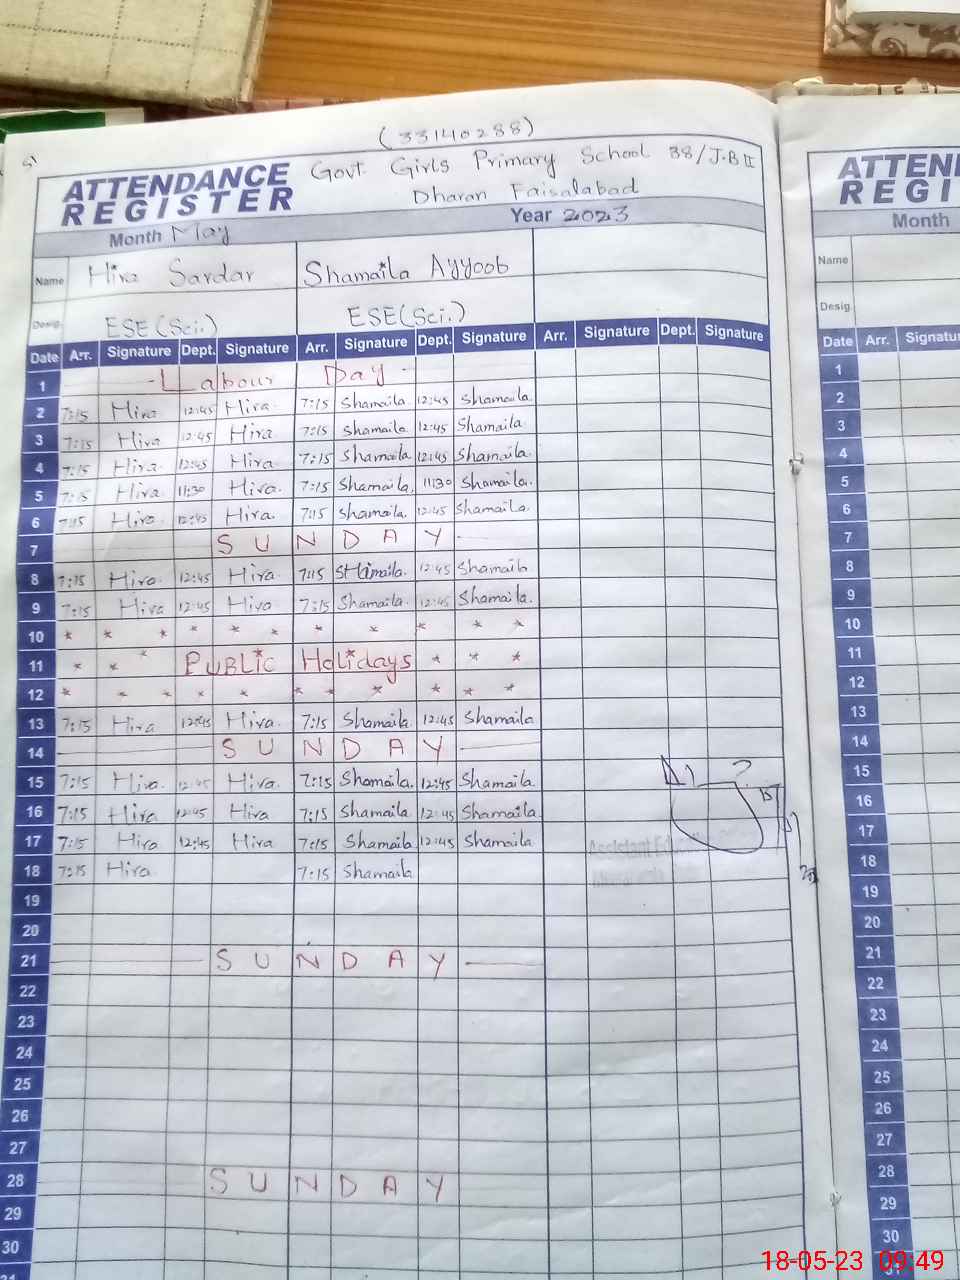 (33140288)
ATTENDANCE REGISTER
Govt. Girls Primary School 38/J.B II
Dharan Faisalabad
Month May Year 2023
Name Hira Sardar Shamaila Ayyoob
Desig. ESE(Sci.) ESE(Sci.)
Date Arr. Signature Dept. Signature Arr. Signature Dept. Signature Arr. Signature Dept. Signature
1 Labour Day
2 7:15 Hira 12:45 Hira 7:15 Shamaila 12:45 Shamaila
3 7:15 Hira 12:45 Hira 7:15 Shamaila 12:45 Shamaila
4 7:15 Hira 12:45 Hira 7:15 Shamaila 12:45 Shamaila
5 7:15 Hira 11:30 Hira 7:15 Shamaila 11:30 Shamaila
6 7:15 Hira 12:45 Hira 7:15 Shamaila 12:45 Shamaila
7 SUNDAY
8 7:15 Hira 12:45 Hira 7:15 Shamaila 12:45 Shamaila
9 7:15 Hira 12:45 Hira 7:15 Shamaila 12:45 Shamaila
10
11 PUBLIC Holidays
12
13 7:15 Hira 12:45 Hira 7:15 Shamaila 12:45 Shamaila
14 SUNDAY
15 7:15 Hira 12:45 Hira 7:15 Shamaila 12:45 Shamaila
16 7:15 Hira 12:45 Hira 7:15 Shamaila 12:45 Shamaila
17 7:15 Hira 12:45 Hira 7:15 Shamaila 12:45 Shamaila
Assistant
18 7:15 Hira 7:15 Shamaila
19
20
21 SUNDAY
22
23
24
25
26
27
28 SUNDAY
29
30
31
ATTEN
REGI
Month
Name
Desig.
Date Arr. Signatu
1
2
3
4
5
6
7
8
9
10
11
12
13
14
15
16
17
18
19
20
21
22
23
24
25
26
27
28
29
30
31
18-05-23 09:49